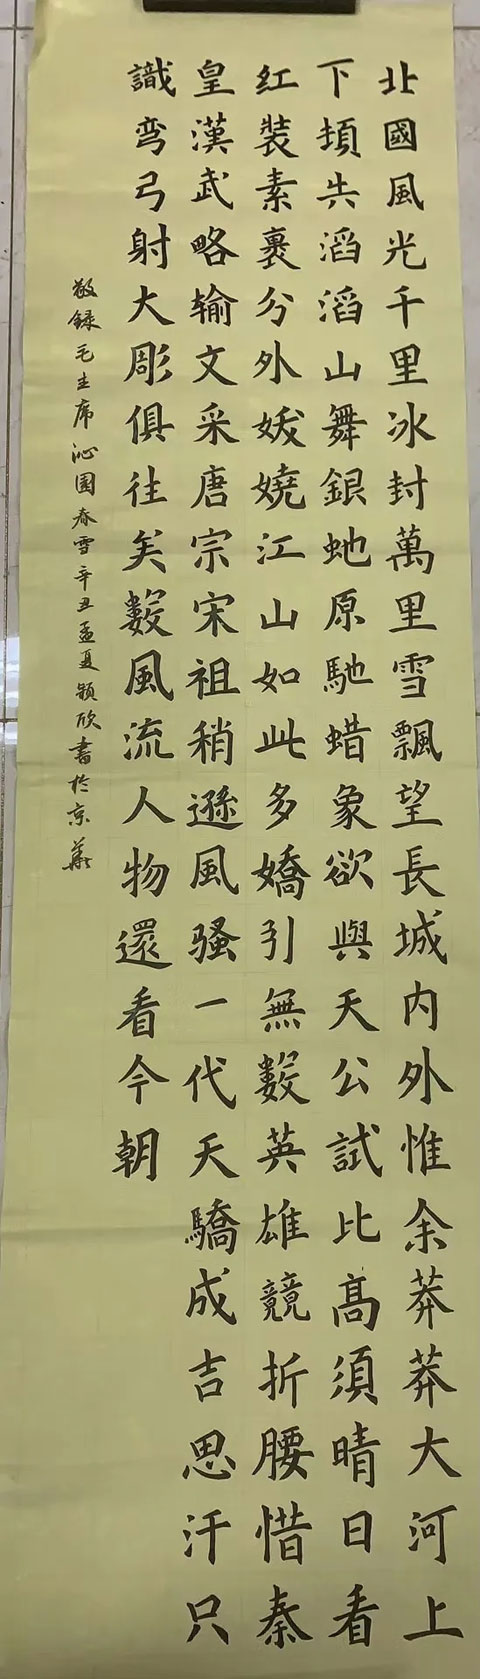 北國風光千里冰封萬里雪飄望長城内外惟余莽莽大河上
下頓失滔滔山舞銀虵原馳蜡象欲與天公試比髙須晴日看
红裝素裹分外妖嬈江山如此多嬌引無數英雄競折腰惜秦
皇漢武略输文采唐宗宋祖稍遜風骚一代天驕成吉思汗只
識弯弓射大彫俱往矣數風流人物還看今朝
敬録毛主席沁園春雪辛丑孟夏颖欣書於京華